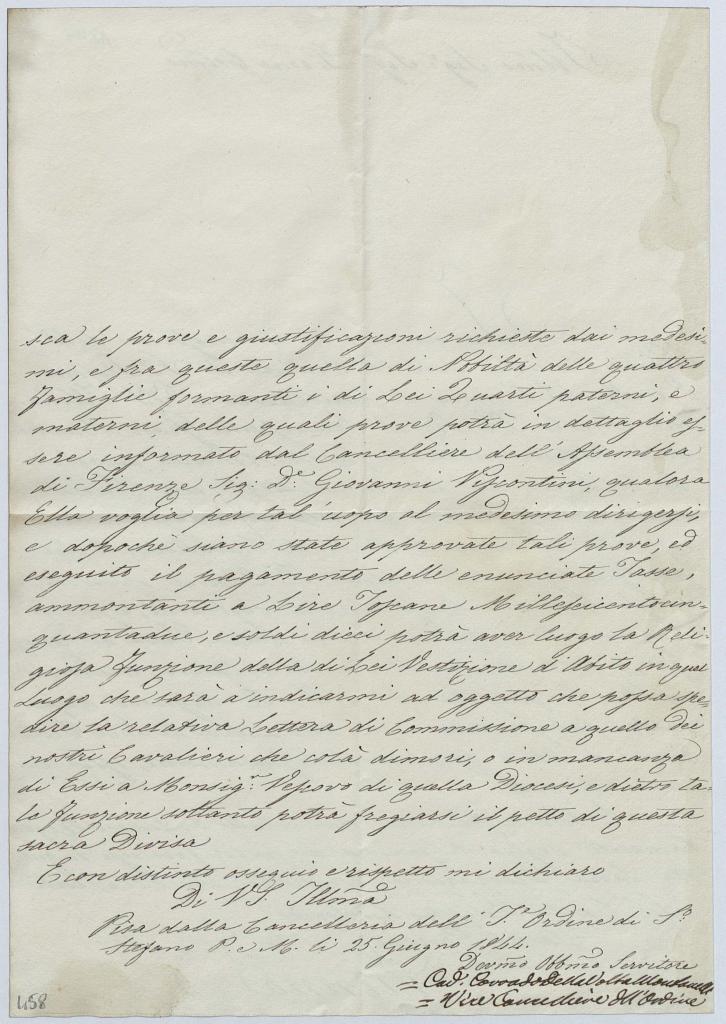 sca le prove e giustificazioni richieste dai medesi-
mi, e fra queste quella di Nobiltà delle quattro
Famiglie formanti i di Lei Quarti paterni, e
materni, delle quali prove potrà in dettaglio es-
sere informato dal Cancelliere dell' Assemblea
di Firenze Sig: D.e Giovanni Viscontini, qualora
Ella voglia per tal' uopo al medesimo dirigersi,
e dopochè siano state approvate tali prove, ed
eseguito il pagamento delle enunciate Tasse,
ammontanti a Lire Toscane Milleseicentocin-
quantadue, e soldi dieci potrà aver luogo la Reli-
giosa Funzione della di Lei Vestizione d'Abito in quel
Luogo che sarà a indicarmi ad oggetto che possa spe-
dire la relativa Lettera di Commissione a quello dei
nostri Cavalieri che colà dimori, o in mancanza
di Essi a Monsig.r Vescovo di quella Diocesi, e dietro ta-
le Funzione soltanto potrà fregiarsi il petto di questa
sacra Divisa
E con distinto ossequio e rispetto mi dichiaro
Di V. S. Illma
Pisa dalla Cancelleria dell' I. Ordine di S.o
Stefano P. e M. li 25. Giugno 1844.
Devmo Obbmo Servitore
= Cav. Corrado Della Volta
= Vice Cancelliere dell'Ordine
458